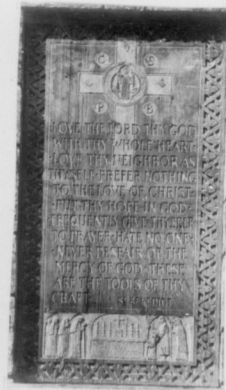 C S
P B
LOVE THE LORD THY GOD
WITH THY WHOLE HEART
LOVE THY NEIGHBOR AS
THYSELF PREFER NOTHING
TO THE LOVE OF CHRIST
PUT THY HOPE IN GOD
FREQUENTLY GIVE THYSELF
TO PRAYER HATE NO ONE
NEVER DESPAIR OF THE
MERCY OF GOD THESE
ARE THE TOOLS OF THY
CRAFT